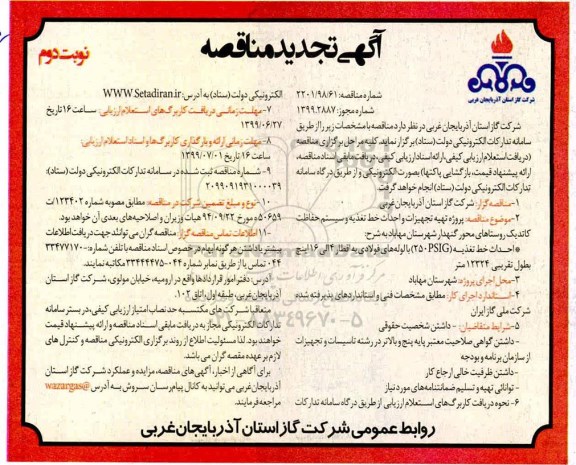 آگهی تجدید مناقصه
نوبت دوم
شرکت گاز استان آذربایجان غربی
شماره مناقصه: ۲۲۰۱/۹۸/۶۱
شماره مجوز: ۱۳۹۹.۲۸۸۷
شرکت گاز استان آذربایجان غربی در نظر دارد مناقصه با مشخصات زیر را از طریق
سامانه تدارکات الکترونیکی دولت (ستاد) برگزار نماید. کلیه مراحل برگزاری مناقصه
(دریافت استعلام ارزیابی کیفی، ارائه اسناد ارزیابی کیفی، دریافت مابقی اسناد مناقصه،
ارائه پیشنهاد قیمت، بازگشایی پاکتها) بصورت الکترونیکی و از طریق درگاه سامانه
تدارکات الکترونیکی دولت (ستاد) انجام خواهد گرفت.
۱- مناقصه گزار: شرکت گاز استان آذربایجان غربی
۲- موضوع مناقصه: پروژه تهیه تجهیزات و احداث خط تغذیه و سیستم حفاظت
کاتدیک روستاهای محور گنهدار شهرستان مهاباد به شرح:
* احداث خط تغذیه (۲۵۰ PSIG) با لوله های فولادی به اقطار ۴ الی ۱۶ اینچ
بطول تقریبی ۱۲۳۲۴ متر
۳- محل اجرای پروژه: شهرستان مهاباد
۴- استاندارد اجرای کار: مطابق مشخصات فنی و استانداردهای پذیرفته شده
شرکت ملی گاز ایران
۵- شرایط متقاضیان: - داشتن شخصیت حقوقی
- داشتن گواهی صلاحیت معتبر پایه پنج و بالاتر در رشته تاسیسات و تجهیزات
از سازمان برنامه و بودجه
- داشتن ظرفیت خالی ارجاع کار
- توانائی تهیه و تسلیم ضمانتنامه های مورد نیاز
۶- نحوه دریافت کاربرگ های استعلام ارزیابی از طریق درگاه سامانه تدارکات
الکترونیکی دولت (ستاد) به آدرس: WWW.Setadiran.ir
۷- مهلت زمانی دریافت کاربرگ های استعلام ارزیابی: ساعت ۱۶ تاریخ
۱۳۹۹/۰۶/۲۷
۸- مهلت زمانی ارائه و بارگذاری کاربرگ ها و اسناد استعلام ارزیابی:
ساعت ۱۶ تاریخ ۱۳۹۹/۰۷/۰۱
۹- شماره مناقصه ثبت شده در سامانه تدارکات الکترونیکی دولت (ستاد):
۲۰۹۹۰۹۱۹۳۱۰۰۰۰۳۹
۱۰- نوع و مبلغ تضمین شرکت در مناقصه: مطابق مصوبه شماره ۱۲۳۴۰۲/ت
۵۰۶۵۹ه مورخ ۹۴/۰۹/۲۲ هیات وزیران و اصلاحیه های بعدی آن خواهد بود.
۱۱- اطلاعات تماس مناقصه گزار: مناقصه گران می توانند جهت دریافت اطلاعات
بیشتر یا داشتن هر گونه ابهام در خصوص اسناد مناقصه با تلفن شماره: ۳۳۴۷۷۱۷۰-
۰۴۴ تماس یا از طریق نمابر شماره ۰۴۴-۳۳۴۴۴۴۷۵ مکاتبه نمایند.
آدرس: دفتر امور قراردادها واقع در ارومیه، خیابان مولوی، شرکت گاز استان
آذربایجان غربی، طبقه اول، اتاق ۱۰۲.
متعاقبا شرکت های مکتسبه حد نصاب امتیاز ارزیابی کیفی، در بستر سامانه
تدارکات الکترونیکی مجاز به دریافت مابقی اسناد مناقصه و ارائه پیشنهاد قیمت
خواهند بود. لذا مسئولیت اطلاع از روند برگزاری الکترونیکی مناقصه و کنترل های
لازم بر عهده مقصه گران می باشد.
برای آگاهی از اخبار، آگهی های مناقصه، مزایده و عملکرد شرکت گاز استان
آذربایجان غربی می توانید به کانال پیام رسان سروش به آدرس @wazargas
مراجعه فرمایند.
روابط عمومی شرکت گاز استان آذربایجان غربی